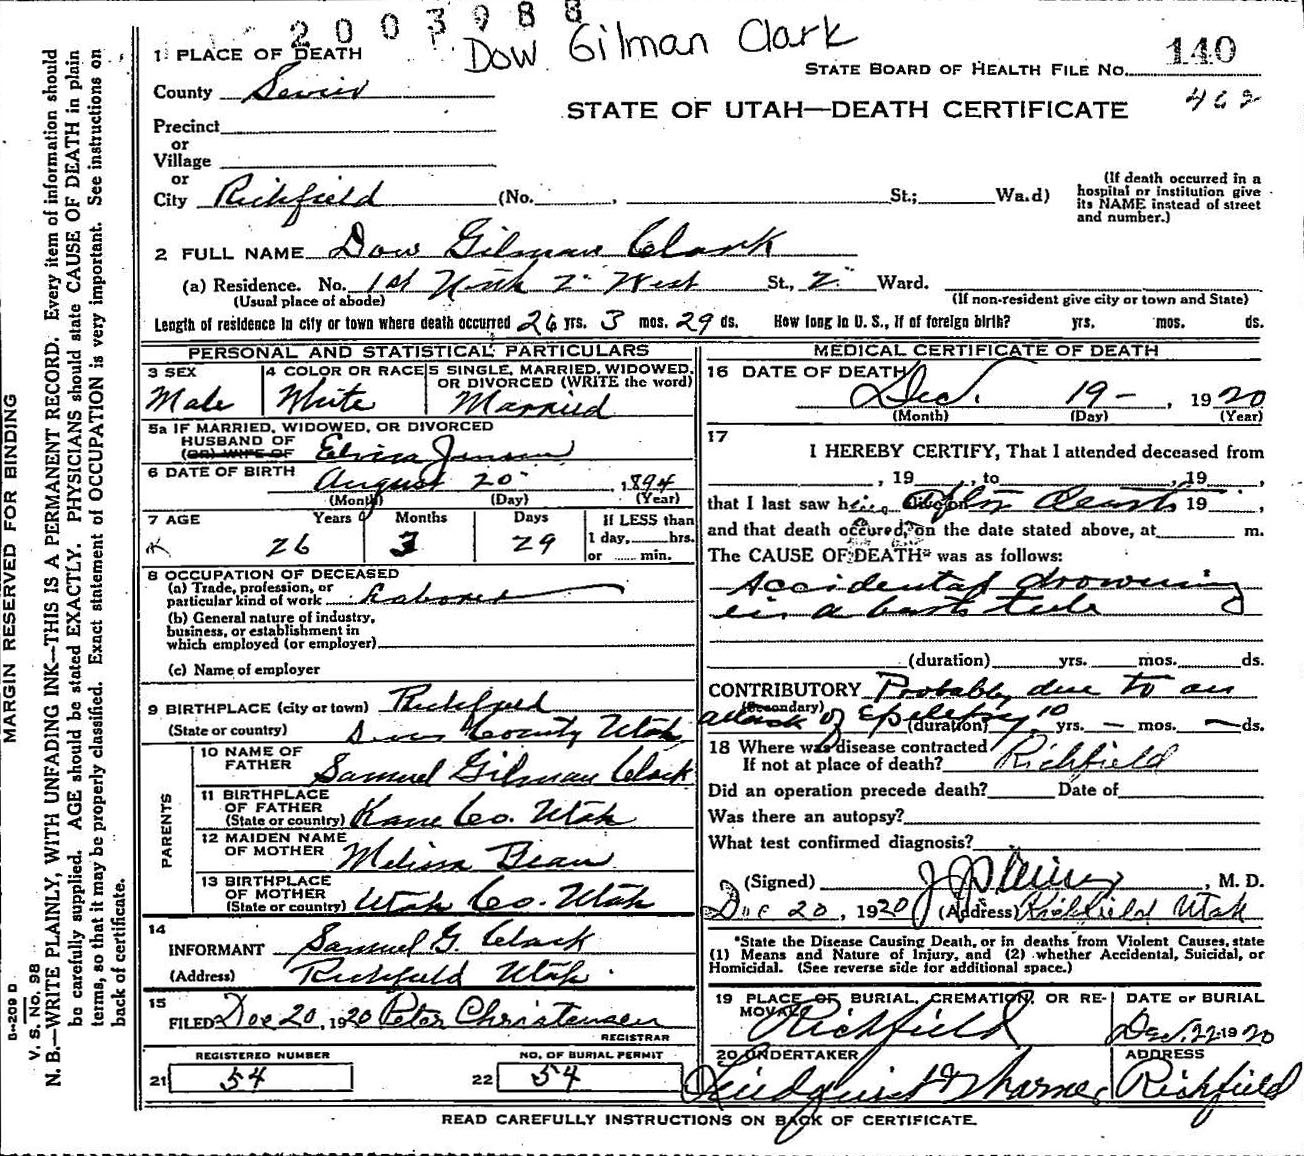 2003988
Dow Gilman Clark
1 PLACE OF DEATH
STATE BOARD OF HEALTH FILE No. 140
County Sevier
STATE OF UTAH—DEATH CERTIFICATE
462
Precinct
or
Village
or
City Richfield (No. , St.; Ward)
(If death occurred in a
hospital or institution give
its NAME instead of street
and number.)
2 FULL NAME Dow Gilman Clark
(a) Residence. No. 1st North 2" West St., 2" Ward.
(Usual place of abode)
(If non-resident give city or town and State)
Length of residence in city or town where death occurred 26 yrs. 3 mos. 29 ds. How long in U. S., if of foreign birth? yrs. mos. ds.
PERSONAL AND STATISTICAL PARTICULARS
3 SEX
Male
4 COLOR OR RACE
White
5 SINGLE, MARRIED, WIDOWED,
OR DIVORCED (WRITE the word)
Married
5a IF MARRIED, WIDOWED, OR DIVORCED
HUSBAND OF
(OR) WIFE OF
6 DATE OF BIRTH August 20 , 1894
(Month) (Day) (Year)
7 AGE Years Months Days
26 3 29
If LESS than
1 day, hrs.
or min.
8 OCCUPATION OF DECEASED
(a) Trade, profession, or
particular kind of work Laborer
(b) General nature of industry,
business, or establishment in
which employed (or employer)
(c) Name of employer
9 BIRTHPLACE (city or town) Richfield
(State or country) Sevier County Utah
PARENTS
10 NAME OF
FATHER Samuel Gilman Clark
11 BIRTHPLACE
OF FATHER
(State or country) Kane Co. Utah
12 MAIDEN NAME
OF MOTHER Melissa Bean
13 BIRTHPLACE
OF MOTHER
(State or country) Utah Co. Utah
14
INFORMANT Samuel G. Clark
(Address) Richfield Utah.
15
FILED Dec 20, 1920 Peter Christensen
REGISTRAR
REGISTERED NUMBER
21 54
NO. OF BURIAL PERMIT
22 54
MEDICAL CERTIFICATE OF DEATH
16 DATE OF DEATH
Dec. 19 - , 1920
(Month) (Day) (Year)
17
I HEREBY CERTIFY, That I attended deceased from
, 19 , to , 19 ,
that I last saw him after death 19 ,
and that death occured, on the date stated above, at m.
The CAUSE OF DEATH* was as follows:
Accidental drowning
in a bath tub
(duration) yrs. mos. ds.
CONTRIBUTORY Probably due to an
(Secondary)
attack of Epilepsy (duration) 10 yrs. — mos. — ds.
18 Where was disease contracted
If not at place of death? Richfield
Did an operation precede death? Date of
Was there an autopsy?
What test confirmed diagnosis?
(Signed) , M. D.
Dec 20, 1920 (Address) Richfield Utah
*State the Disease Causing Death, or in deaths from Violent Causes, state
(1) Means and Nature of Injury, and (2) whether Accidental, Suicidal, or
Homicidal. (See reverse side for additional space.)
19 PLACE OF BURIAL, CREMATION, OR RE-
MOVAL Richfield
DATE OF BURIAL
Dec. 22 1920
20 UNDERTAKER
ADDRESS
Richfield
READ CAREFULLY INSTRUCTIONS ON BACK OF CERTIFICATE.
MARGIN RESERVED FOR BINDING
B—209 D
V. S. No. 98
N. B.—WRITE PLAINLY, WITH UNFADING INK—THIS IS A PERMANENT RECORD. Every item of information should
be carefully supplied. AGE should be stated EXACTLY. PHYSICIANS should state CAUSE OF DEATH in plain
terms, so that it may be properly classified. Exact statement of OCCUPATION is very important. See instructions on
back of certificate.